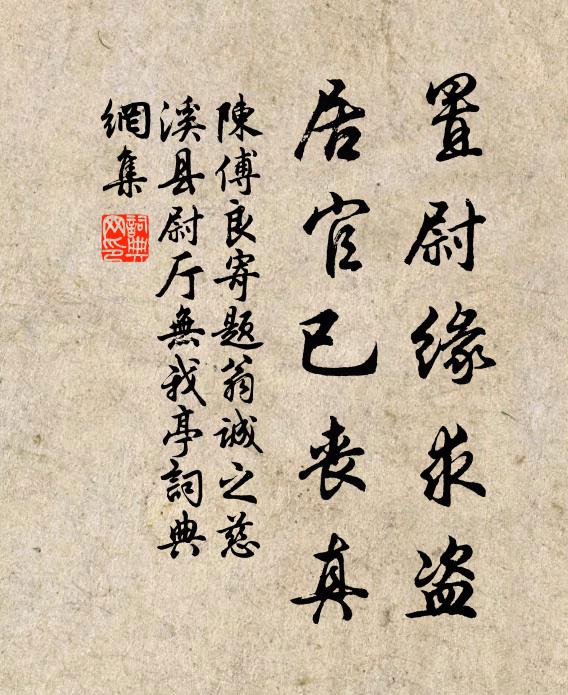 置尉缘求盗
居官已丧真
陳傅良寄題翁诚之慈
溪县尉厅無我亭詞典
網集
詞典
网印